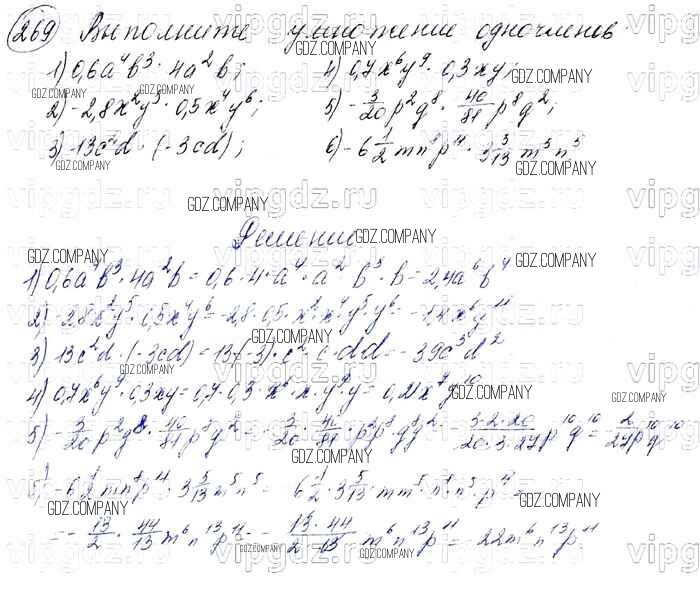 269 Выполните умножение одночленов
1) 0,6a⁴b³ · 4a²b; 4) 0,7x⁶y⁹ · 0,3xy;
2) -2,8x²y⁵ · 0,5x⁴y⁶; 5) -3/20 p²q⁸ · 40/81 p⁸q²;
3) -13c²d · (-3cd); 6) -6 1/2 mn⁸p¹¹ · 3 5/13 m⁵n⁵
Решение
1) 0,6a⁴b³ · 4a²b = 0,6 · 4 · a⁴ · a² · b³ · b = 2,4a⁶b⁴
2) -2,8x²y⁵ · 0,5x⁴y⁶ = -2,8 · 0,5 · x² · x⁴ · y⁵ y⁶ = -1,4x⁶y¹¹
3) 13c²d · (-3cd) = 13 · (-3) · c² · c · dd = -39c³d²
4) 0,7x⁶y⁹ · 0,3xy = 0,7 · 0,3 · x⁶ · x · y⁹ y = 0,21x⁷y¹⁰
5) -3/20 p²q⁸ · 40/81 p⁸q² = -3/20 · 40/81 · p²p⁸q⁸q² = -3·2·20/20·3·27 p¹⁰q¹⁰ = 2/27 p¹⁰q¹⁰
6) -6 1/2 mn⁸p¹¹ · 3 5/13 m⁵n⁵ = 6 1/2 · 3 5/13 · mm⁵ · n⁸ · n⁵ · p¹¹ =
= -13/2 · 44/13 m⁶n¹³p¹¹ = -13·44/2·13 m⁶n¹³p¹¹ = -22m⁶n¹³p¹¹
GDZ.COMPANY
vipgdz.ru